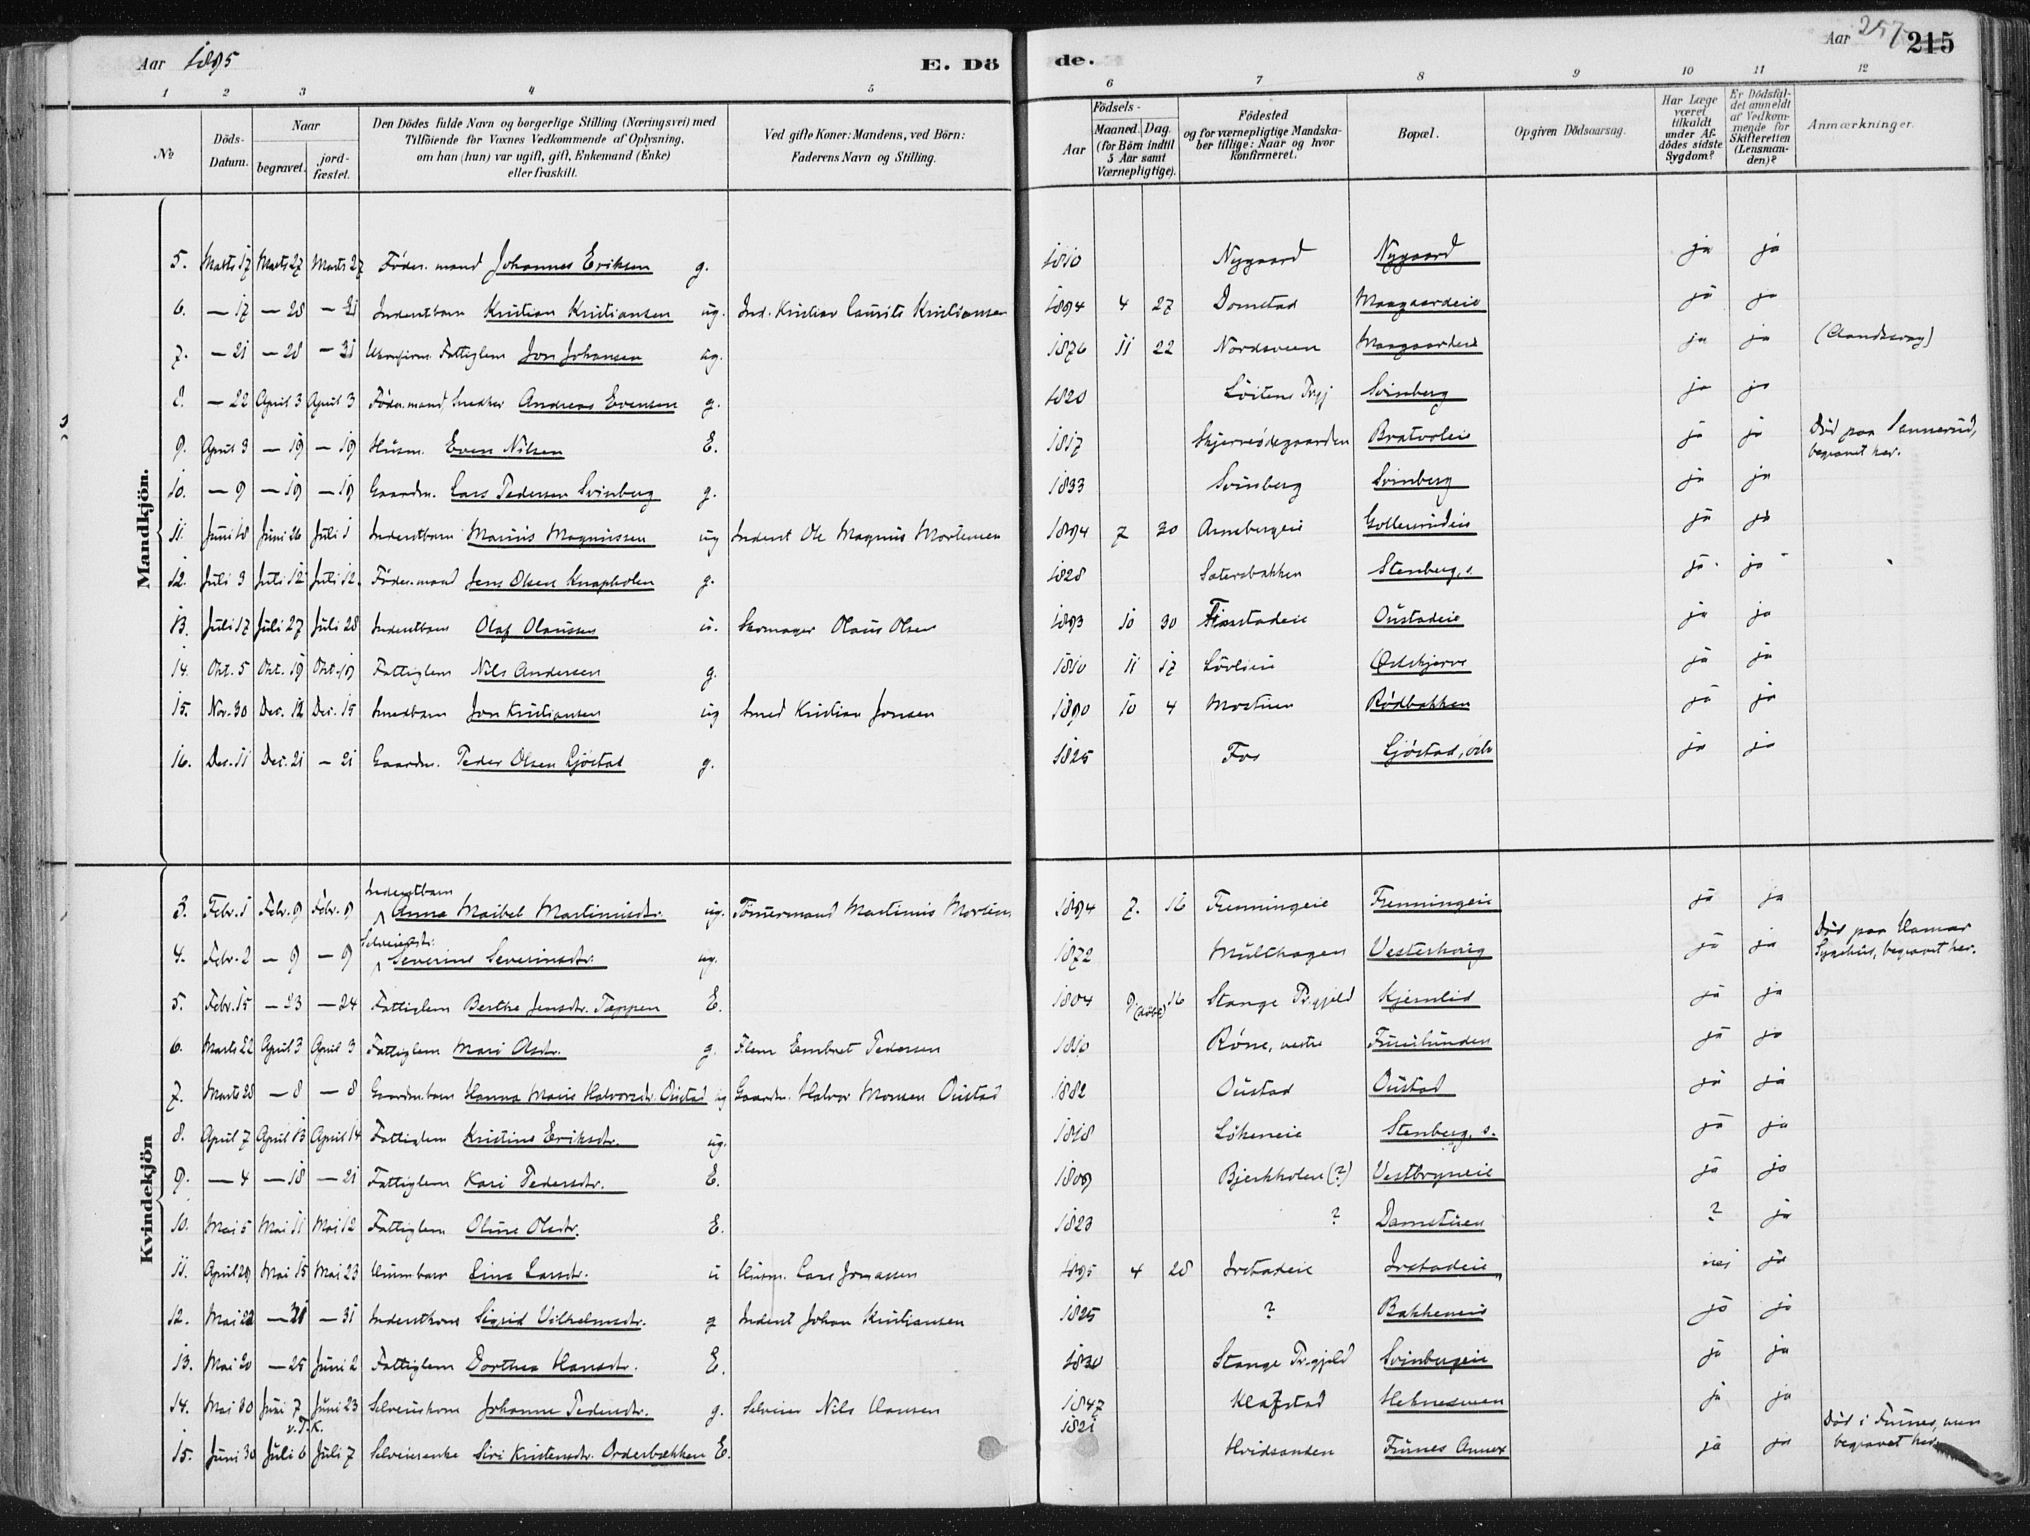 Aar 1895 E. Dö de. Aar 257 215
1 2 3 4 5 6 7 8 9 10 11 12
No
Döds-Datum.
Naar
begravet.
jord-fæstet.
Den Dödes fulde Navn og borgerlige Stilling (Næringsvei) med
Tilföiende for Voxnes Vedkommende af Oplysning,
om han (hun) var ugift, gift, Enkemand (Enke)
eller fraskilt.
Ved gifte Koner: Mandens, ved Börn:
Faderens Navn og Stilling.
Födsels-
Aar
Maaned. Dag.
(for Börn indtil
5 Aar samt
Værnepligtige).
Födested
og for værnepligtige Mandska-
ber tillige: Naar og hvor
konfirmeret.
Bopæl.
Opgiven Dödsaarsag.
Har Læge
været
tilkaldt
under Af-
dödes sidste
Sygdom?
Er Dödsfal-
det anmeldt
af Vedkom-
mende for
Skifteretten
(Lensman-
den)?
Anmærkninger.
Mandkjön.
5. Marts 17 Marts 27 Marts 27 Föder.mand Johannes Eriksen g. 1810 Nygaard Nygaard ja ja
6. — 17 — 28 — 31 Inderstbarn Kristian Kristiansen ug. Ind. Kristian Laurits Kristiansen 1894 4 27 Domstad Maagaardeie ja ja
7. — 21 — 28 — 31 Ukonfirm. Fattiglem Jon Johansen ug. 1876 11 22 Nordsveen Maagaardeie ja ja (Aandssvag)
8. — 22 April 3 April 3 Föder.mand Snedker Andreas Evensen g. 1820 Löitens Prgj Svinberg ja ja
9. April 3 — 19 — 19 Husm. Even Nilsen E. 1817 Skjerveödegaarden Bratvoleie ja ja Död paa Sannerud, begravet her.
10. — 9 — 19 — 19 Gaardm. Lars Pedersen Svinberg g. 1833 Svinberg Svinberg ja ja
11. Juni 18 Juni 26 Juli 1 Inderstbarn Marius Magnussen ug Inderst Ole Magnus Mortensen 1894 7 30 Arnebergeie Gollerudeie ja ja
12. Juli 3 Juli 12 Juli 12. Föder.mand Jens Olsen Knapholen g. 1828 Sætersbakken Stenberg, s. ja ja
13. Juli 17 Juli 27 Juli 28 Inderstbarn Olaf Olaussen u. Skomager Olaus Olsen 1893 10 30 Finstadeie Oustadeie ja ja
14. Okt. 5 Okt. 19 Okt. 19 Fattiglem Nils Andersen g. 1810 11 17 Lövlieie Ödskjerve ja ja
15. Nov. 30 Dec. 12 Dec. 15 Smedbarn Jon Kristiansen ug Smed Kristian Jonsen 1890 10 4 Mostuen Rödbakken ja ja
16. Dec. 11 Dec. 21 — 21 Gaardm. Peder Olsen Gjöstad g. 1825 Fos Gjöstad, östr ja ja
Kvindekjön
3. Febr. 1 Febr. 9 Febr. 9 Inderstbarn Anna Maibel Martinusdtr. ug. Tömmermand Martinus Mortens 1894 7. 16 Frenningeie Frenningeie ja ja
4. Febr. 2 — 9 — 9 Selveierdtr. Severine Severinsdtr. ug. 1872 Multhagen Vesterhaug ja ja Död paa Hamar Sygehus, begravet her.
5. Febr. 15 — 23 — 24 Fattiglem Berthe Jensdtr. Tæppen E. 1804 9 (döbt) 16 Stange Prgjeld Kjernlid ja ja
6. Marts 22 April 3 April 3 Fattiglem Mari Olsdtr. g. Flem Embret Pedersen 1810 Röne, vestre Furulunden ja ja
7. Marts 28 — 8 — 8 Gaardm.barn Hanna Marie Halvorsdtr. Oustad ug Gaardm. Halvor Monsen Oustad 1882 Oustad Oustad ja ja
8. April 7 April 13 April 14 Fattiglem Kristine Eriksdtr. ug. 1818 Lökeneie Stenberg, s. ja ja
9. — 4 — 18 — 21 Fattiglem Kari Pedersdtr. E. 1809 Bjerkholen (?) Vestbryneie ja ja
10. Mai 5 Mai 11 Mai 12 Fattiglem Oline Olsdtr. E. 1823 ? Damstuen ? ja
11. April 29 Mai 15 Mai 23 Husmbarn Lina Larsdtr. u Husm. Lars Jonassen 1895 4 28 Irstadeie Irstadeie nei ja
12. Mai 22 — 31 — 31 Inderstkone Sigrid Vilhelmsdtr. g Inderst Johan Kristiansen 1825 ? Bakkeneie ja ja
13. Mai 20 — 25 Juni 2 Fattiglem Dorthea Hansdtr. E. 1830 Stange Prgjeld Svinbergeie ja ja
14. Mai 30 Juni 7 Juni 23 Selveierkone Johanne Pedersdtr. g. Selveier Nils Hansen 1847 Klafstad Heknesveen ja ja
v.T.K.
15. Juni 30 Juli 6 Juli 7 Selveierenke Siri Kristensdtr. Orderbækken E. 1821 Hvidsanden Furnes Annex ja ja Död i Furnes, men begravet her.